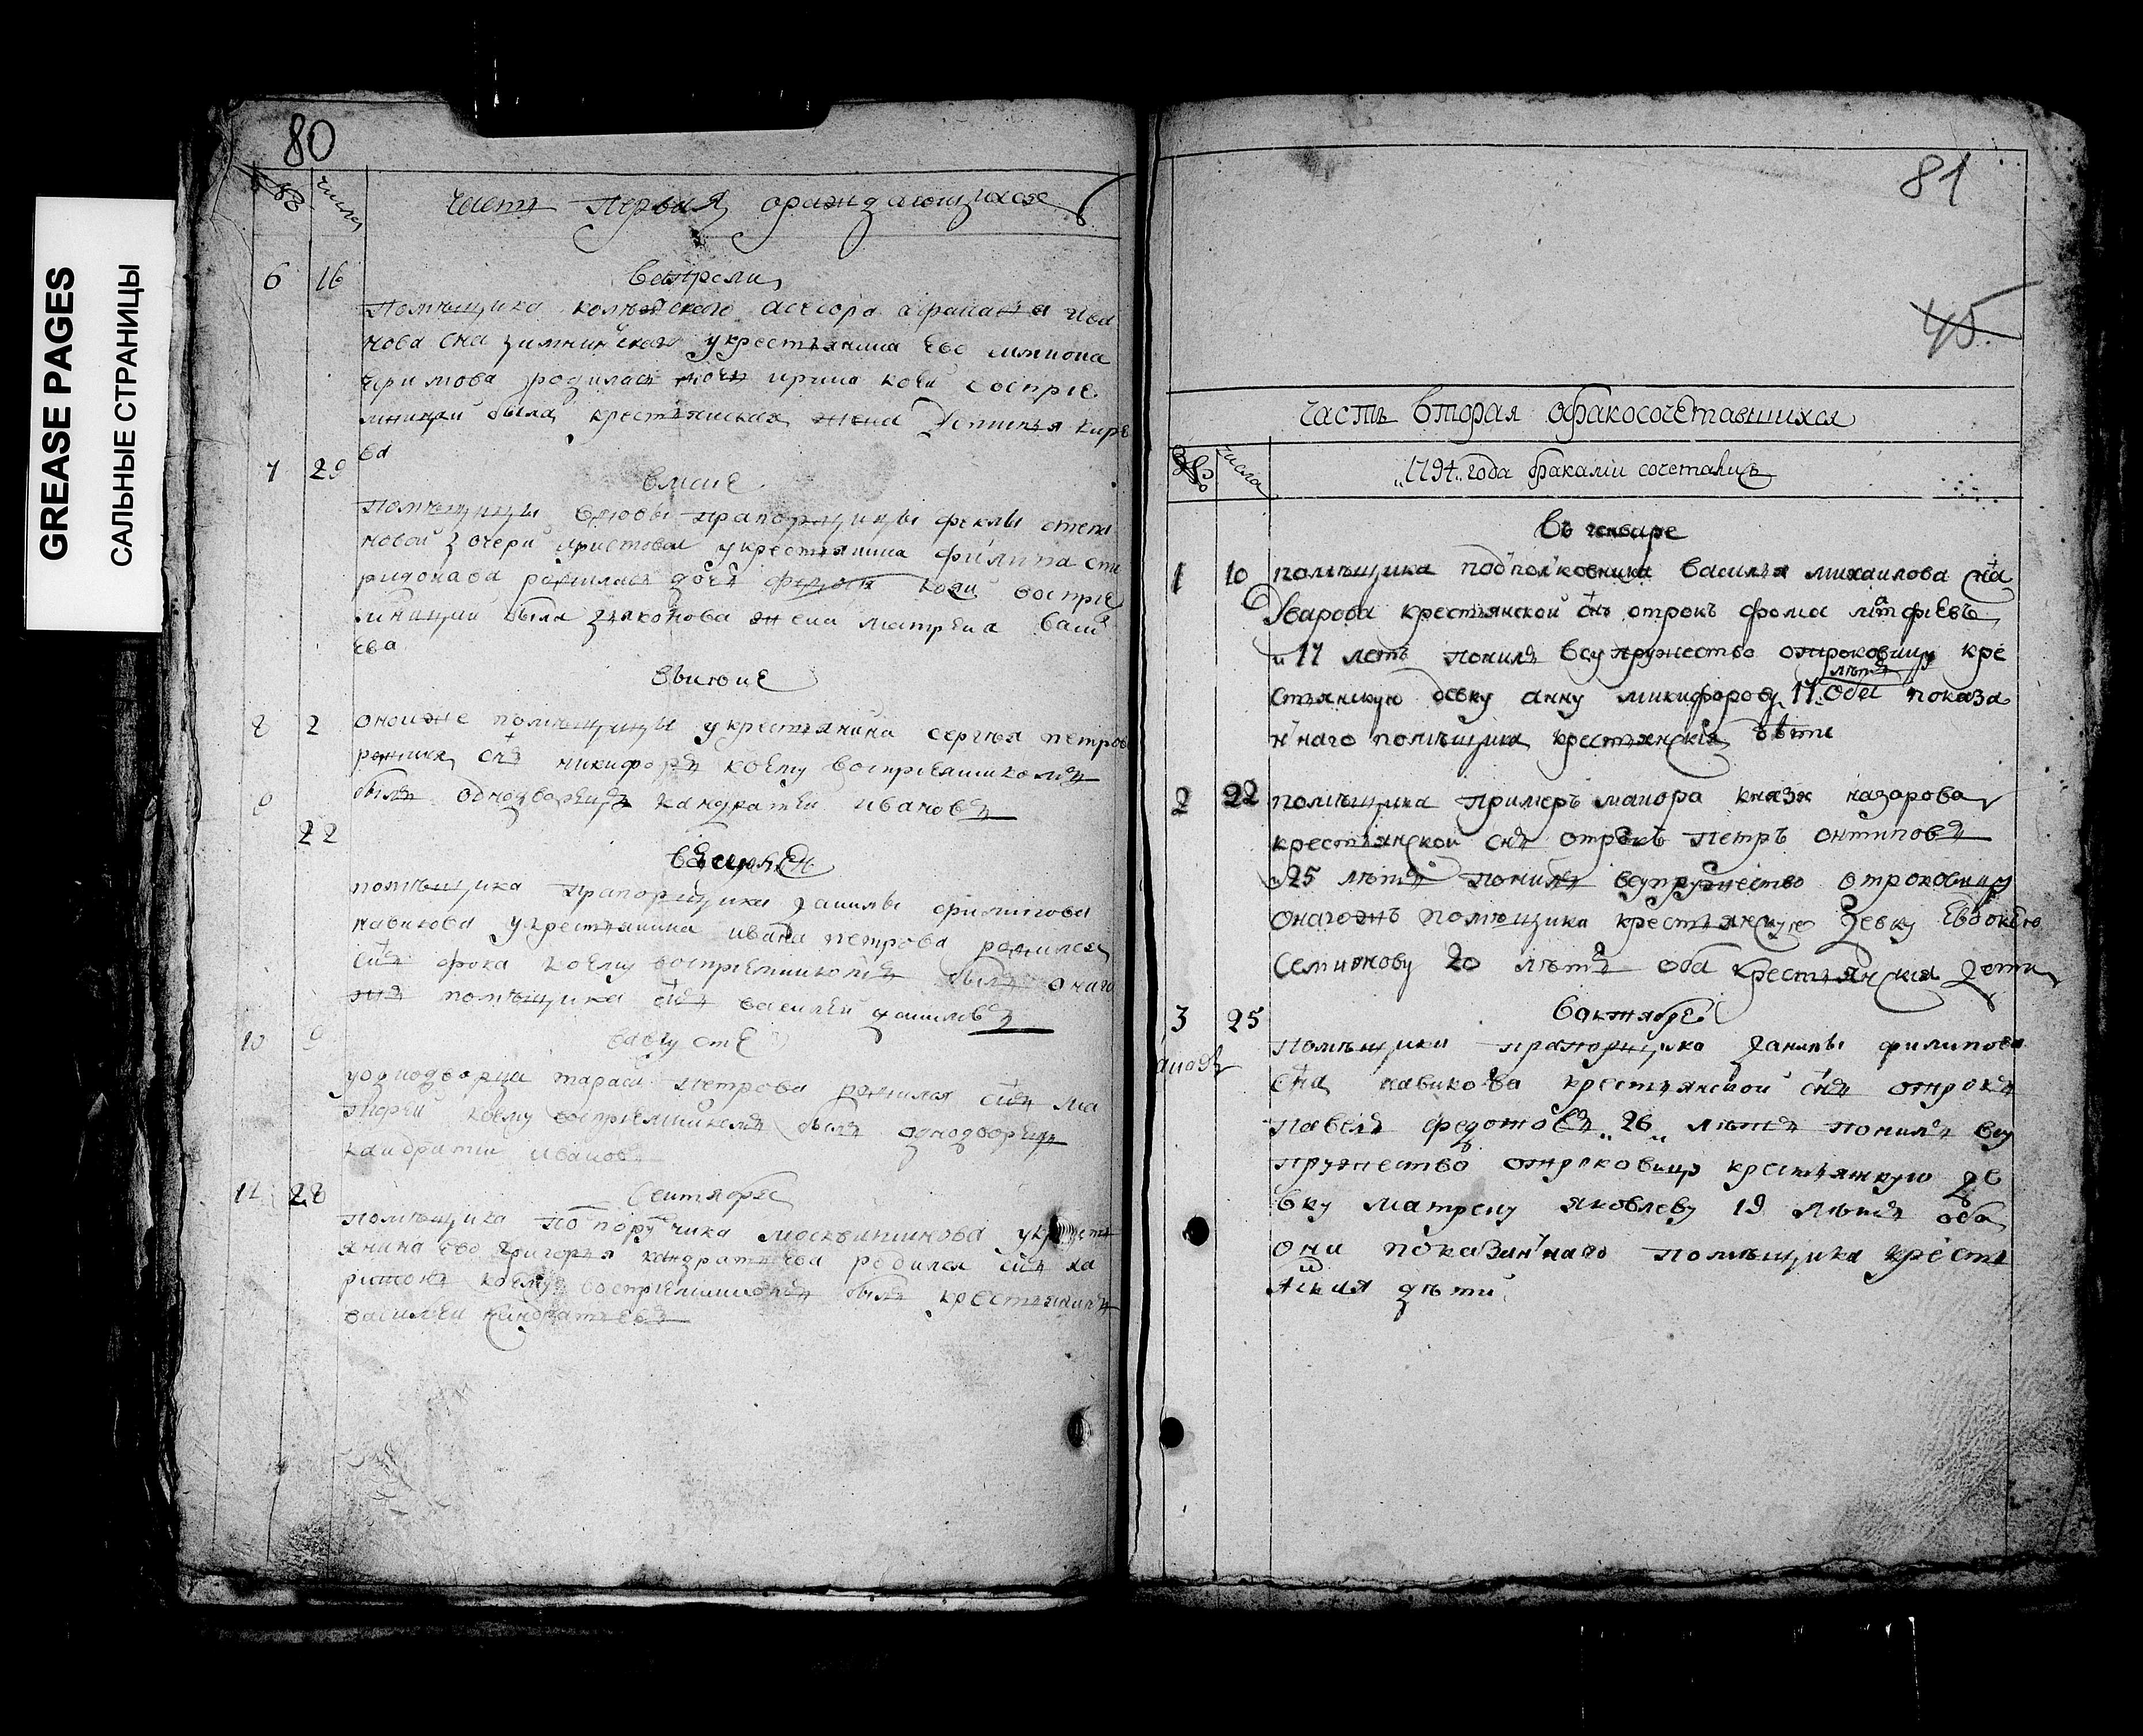 GREASE PAGES
САЛЬНЫЕ СТРАНИЦЫ
80
числа
часть первая ораждающихся
6 16 Вапрели
помѣщика колѣжскаго асесора афанасья ива
нова сна укрестьянина ево симиона
родилась дочь ирина коей сосприе
мницей была крестьянская жена
ва
7 29 вмаие
помѣщицы вдовы прапорщицы феклы степа
новой дочери укрестьянина филипа спи
ридонава радилась дочь коей восприе
мницей была дьяконова жена матрена васи
ева
выюне
8 2 оноиже помѣщицы укрестьянина сергѣя петров
радился снъ никифоръ коему восприемникомъ
былъ однодворецъ кандратеи ивановъ
22
помѣщика прапорщика данилы филипова
навикова укрестьянина ивана петрова радился
снъ фока коему восприемникомъ былъ онаго
жъ помѣщика снъ василеи даниловъ
10 9 вавгусте
уоднодворца тараса петрова радился снъ ма
коему восприемникомъ былъ однодворецъ
кандратеи ивановъ
28 сентября
помѣщика подпоручика москвитинова укрестъ
янина ево григорья кандратьева родился снъ ха
ритонъ коему восприемникомъ былъ крестьянинъ
василеи кандратьевъ
81
45.
часть вторая обракосочетавшихся
числа 1794 года бракамии сочетании
въ генваре
1 10 помѣщика подполковника василья михаилова сна
Уварова крестьянской снъ отрокъ фома матфиевъ
17 летъ понилъ всупружество отроковицу кре
стьянскую девку анну микифорову 17 лѣтъ оба показа
ннаго помѣщика крестьянския
2 22 помѣщика примеръ маиора князя назарова
крестьянской снъ отрокъ петръ онтиповъ
25 лѣтъ понилъ всупружество отроковицу
онагожъ помѣщика крестьянскую девку Евдокею
Семионову 20 лѣтъ оба крестьянския дети
3 25 воктябре
помѣщика прапорщика данилы филипова
сна навикова крестьянской снъ отрокъ
павелъ федотовъ 26 лѣтъ понилъ всу
пружество отроковицу крестьянкую де
вку матрену яковлеву 19 лѣтъ оба
они показанннаго помѣщика крестъ
яския дѣти